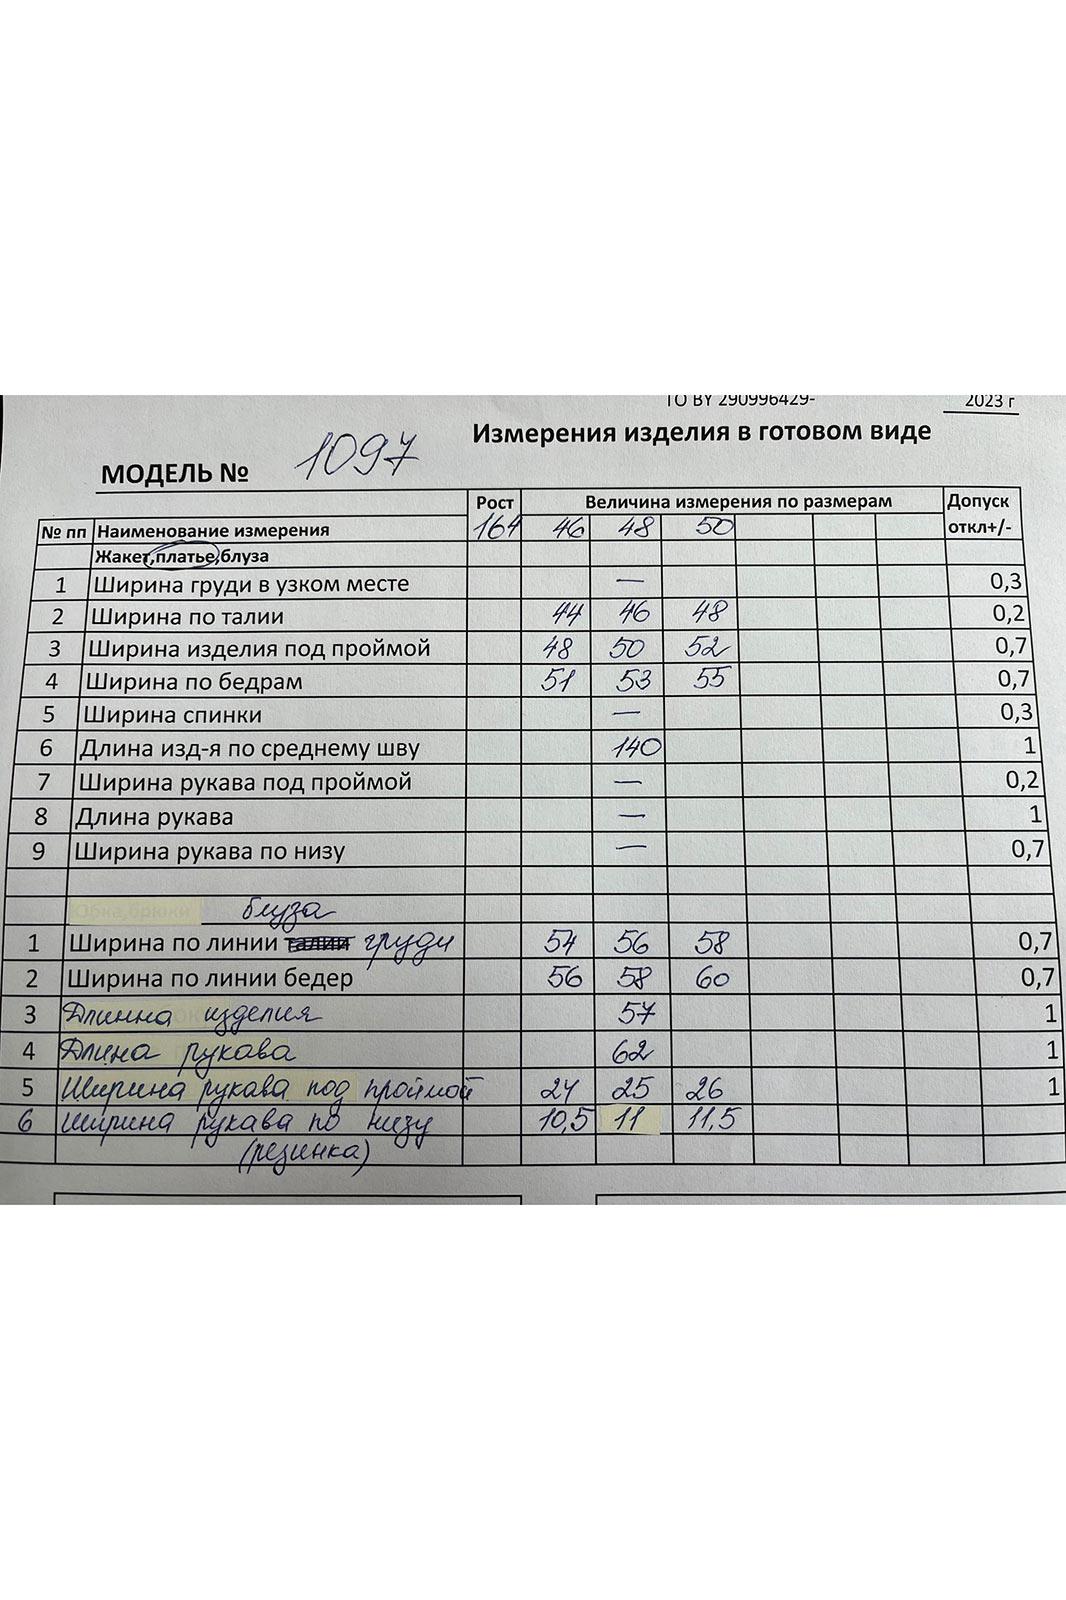 ТО BY 290996429- 2023 г
Измерения изделия в готовом виде
МОДЕЛЬ № 1097
Рост Величина измерения по размерам Допуск
№ пп Наименование измерения 164 46 48 50 откл+/-
Жакет,платье,блуза
1 Ширина груди в узком месте — 0,3
2 Ширина по талии 44 46 48 0,2
3 Ширина изделия под проймой 48 50 52 0,7
4 Ширина по бедрам 51 53 55 0,7
5 Ширина спинки — 0,3
6 Длина изд-я по среднему шву 140 1
7 Ширина рукава под проймой — 0,2
8 Длина рукава — 1
9 Ширина рукава по низу — 0,7
Юбка,брюки блуза
1 Ширина по линии талии груди 54 56 58 0,7
2 Ширина по линии бедер 56 58 60 0,7
3 Длинна изделия 57 1
4 Длина рукава 62 1
5 Ширина рукава под проймой 24 25 26 1
6 Ширина рукава по низу 10,5 11 11,5
(резинка)